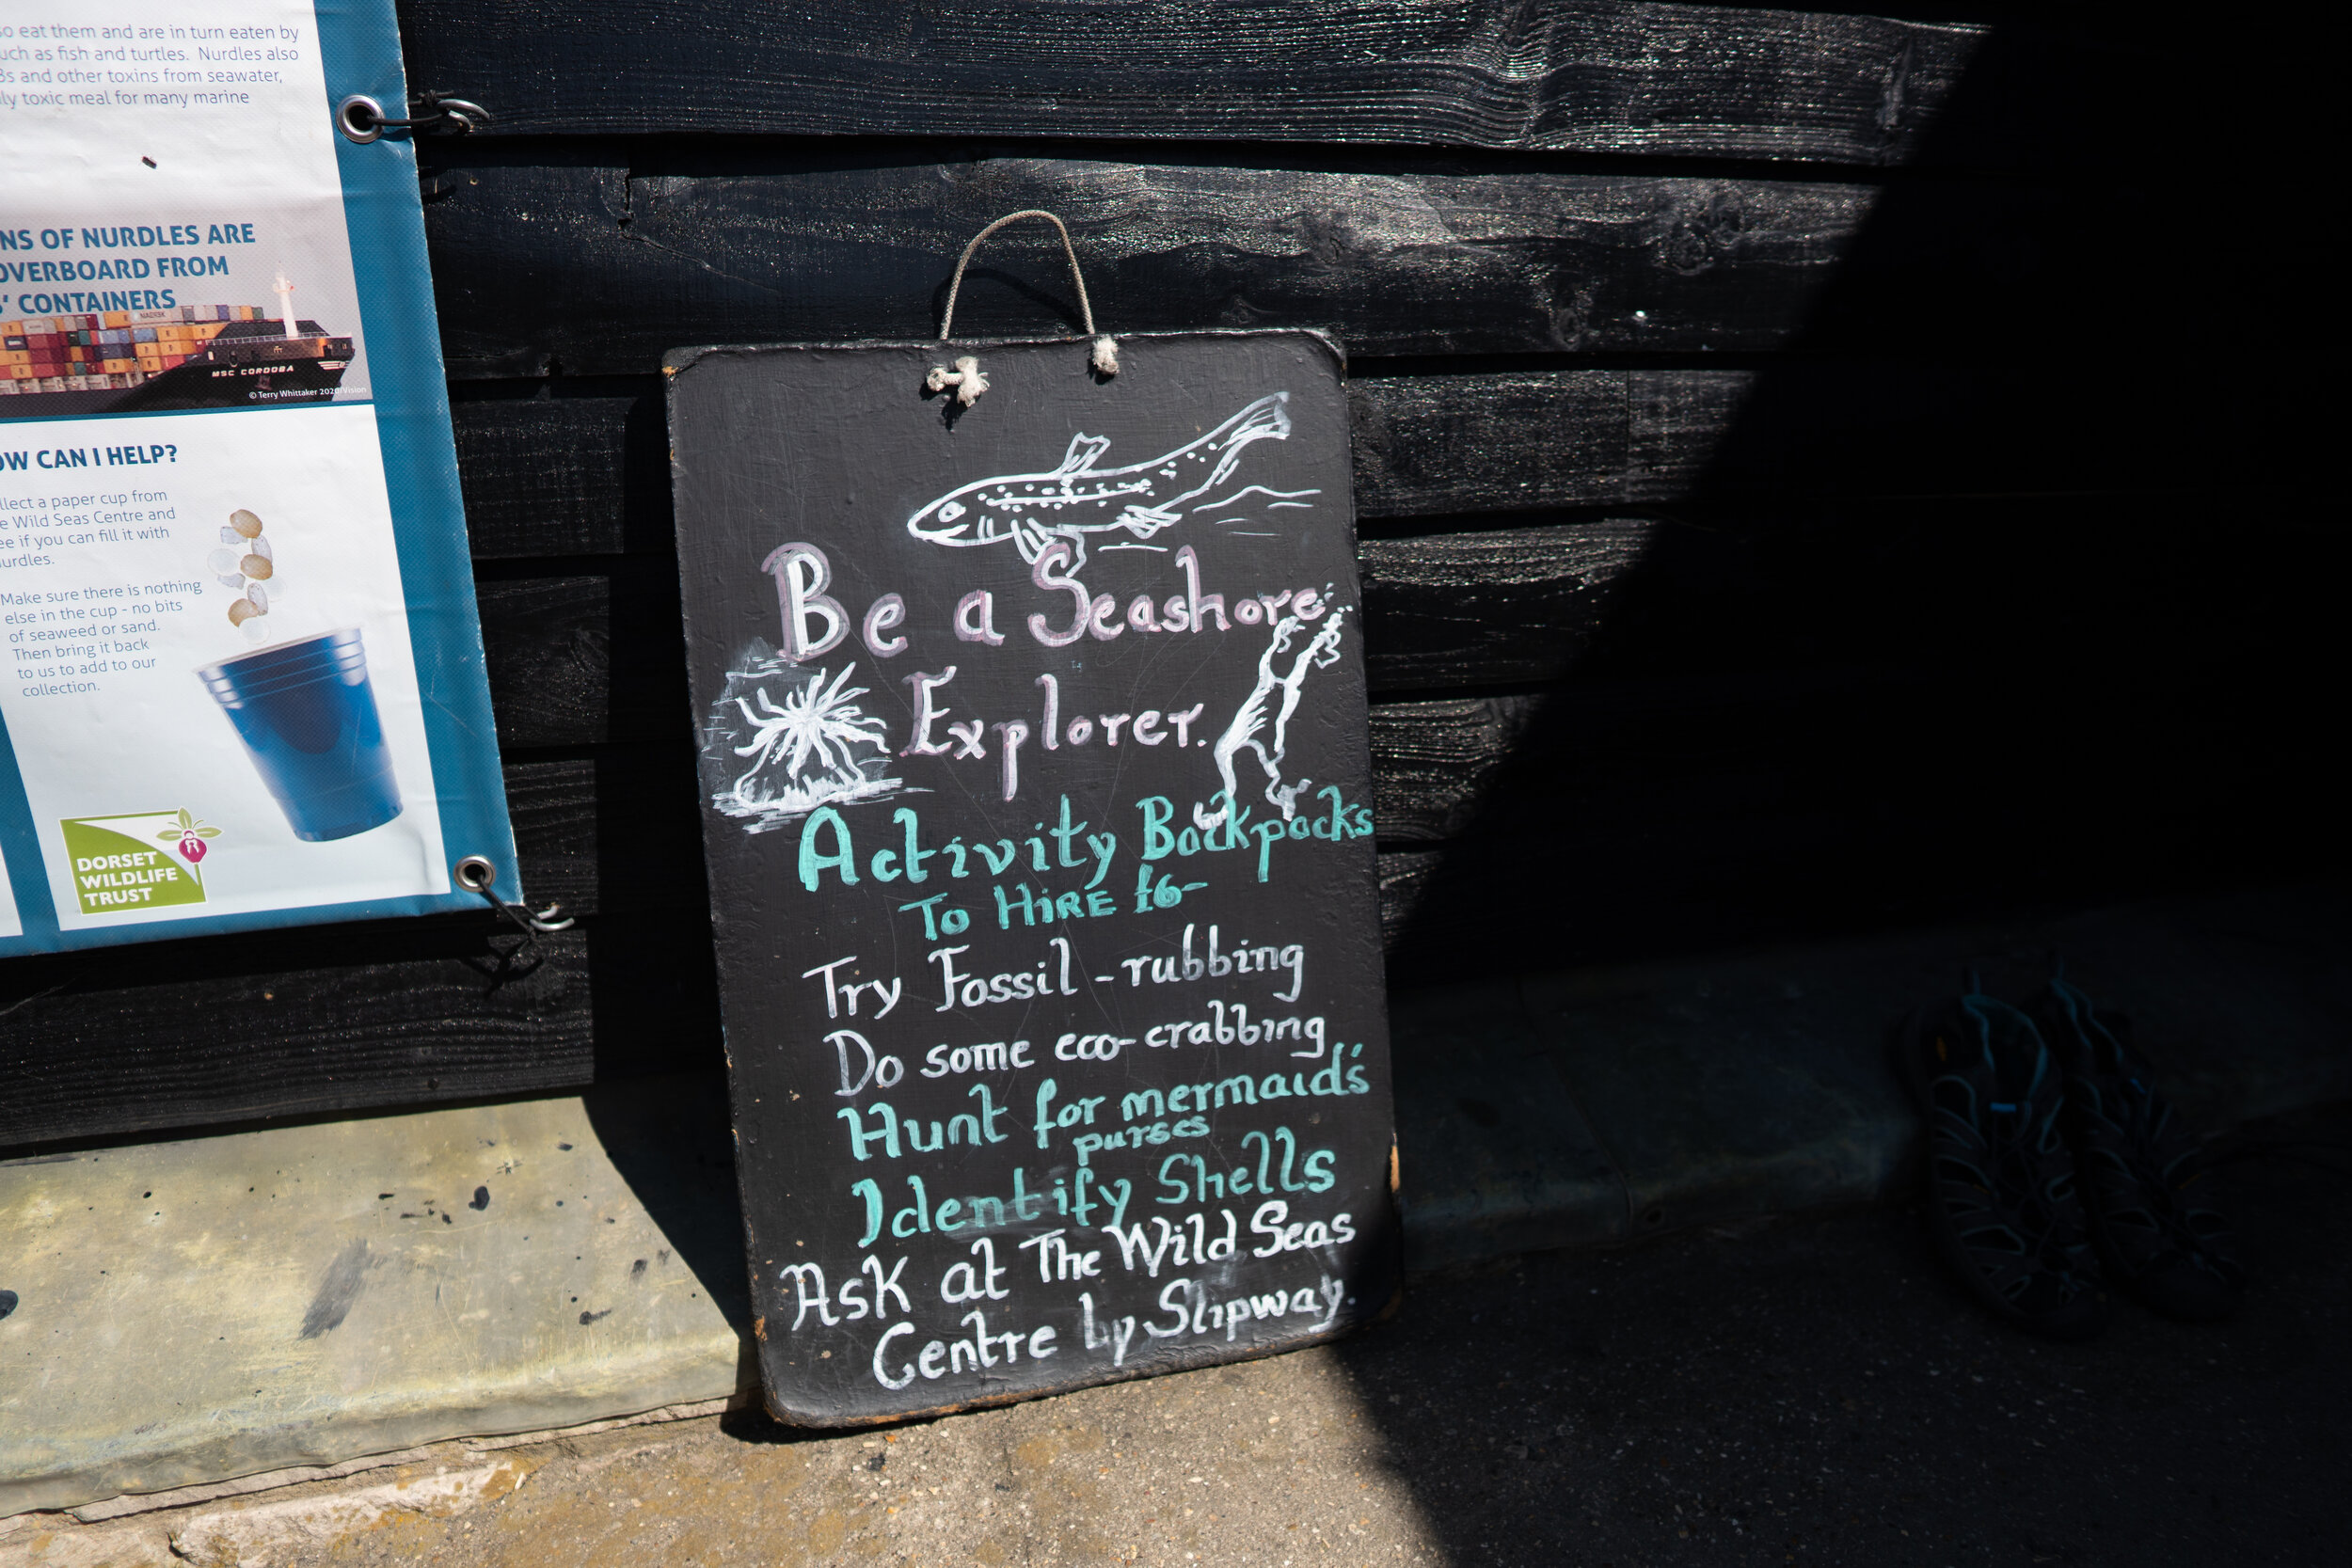 so eat them and are in turn eaten by
such as fish and turtles. Nurdles also
Bs and other toxins from seawater,
ly toxic meal for many marine
NS OF NURDLES ARE
OVERBOARD FROM
S' CONTAINERS
MSC CORDOBA
© Terry Whittaker 2020 Vision
OW CAN I HELP?
llect a paper cup from
e Wild Seas Centre and
ee if you can fill it with
urdles.
Make sure there is nothing
else in the cup - no bits
of seaweed or sand.
Then bring it back
to us to add to our
collection.
DORSET
WILDLIFE
TRUST
Be a Seashore
Explorer.
Activity Backpacks
To HiRE £6-
Try Fossil-rubbing
Do some eco-crabbing
Hunt for mermaid's
purses
Identify Shells
Ask at The Wild Seas
Centre by Slipway.